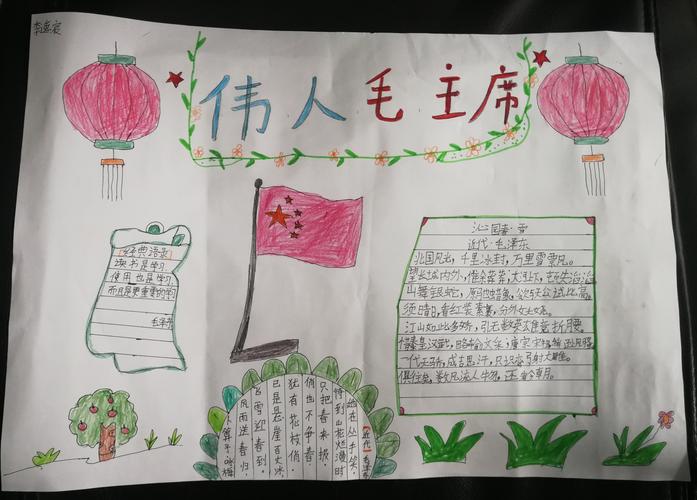 李
伟人毛主席
经典语录
读书是学习
使用也是学习,
而且是更重要的学
毛泽东
沁园春·雪
近代·毛泽东
北国风光,千里冰封,万里雪飘。
望长城内外,惟余莽莽,大河上下,顿失滔滔
山舞银蛇,原驰蜡象,欲与天公试比高。
须晴日,看红装素裹,分外妖娆。
江山如此多娇,引无数英雄竞折腰。
惜秦皇汉武,略输文采,唐宗宋祖
一代天骄,成吉思汗,只识弯弓射大雕。
俱往矣,数风流人物,还看今朝。
卜算子·咏梅
风雨送春归,
飞雪迎春到,
已是悬崖百丈冰
犹有花枝俏
俏也不争春
只把春来报,
待到山花烂漫时
她在丛中笑,
近代